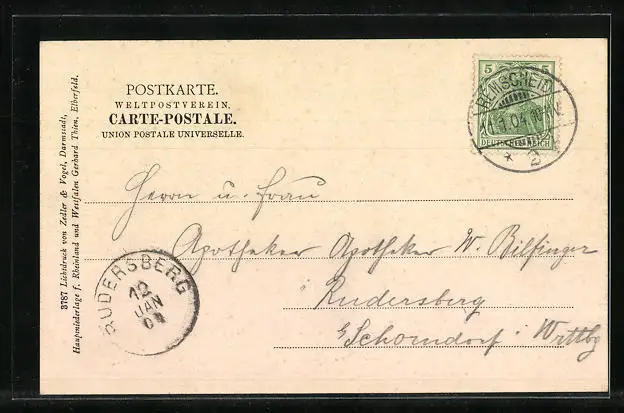 POSTKARTE.
WELTPOSTVEREIN.
CARTE-POSTALE.
UNION POSTALE UNIVERSELLE.
5 5
DEUTSCHES REICH
REMSCHEID
1.04
* 2
Herrn u. Frau
Apotheker Apotheker W. Bilfinger
Rudersberg
b/Schorndorf Wrttbg
RUDERSBERG
12
JAN
04
3787 Lichtdruck von Zedler & Vogel, Darmstadt,
Hauptniederlage f. Rheinland und Westfalen Gerhard Thien, Elberfeld.